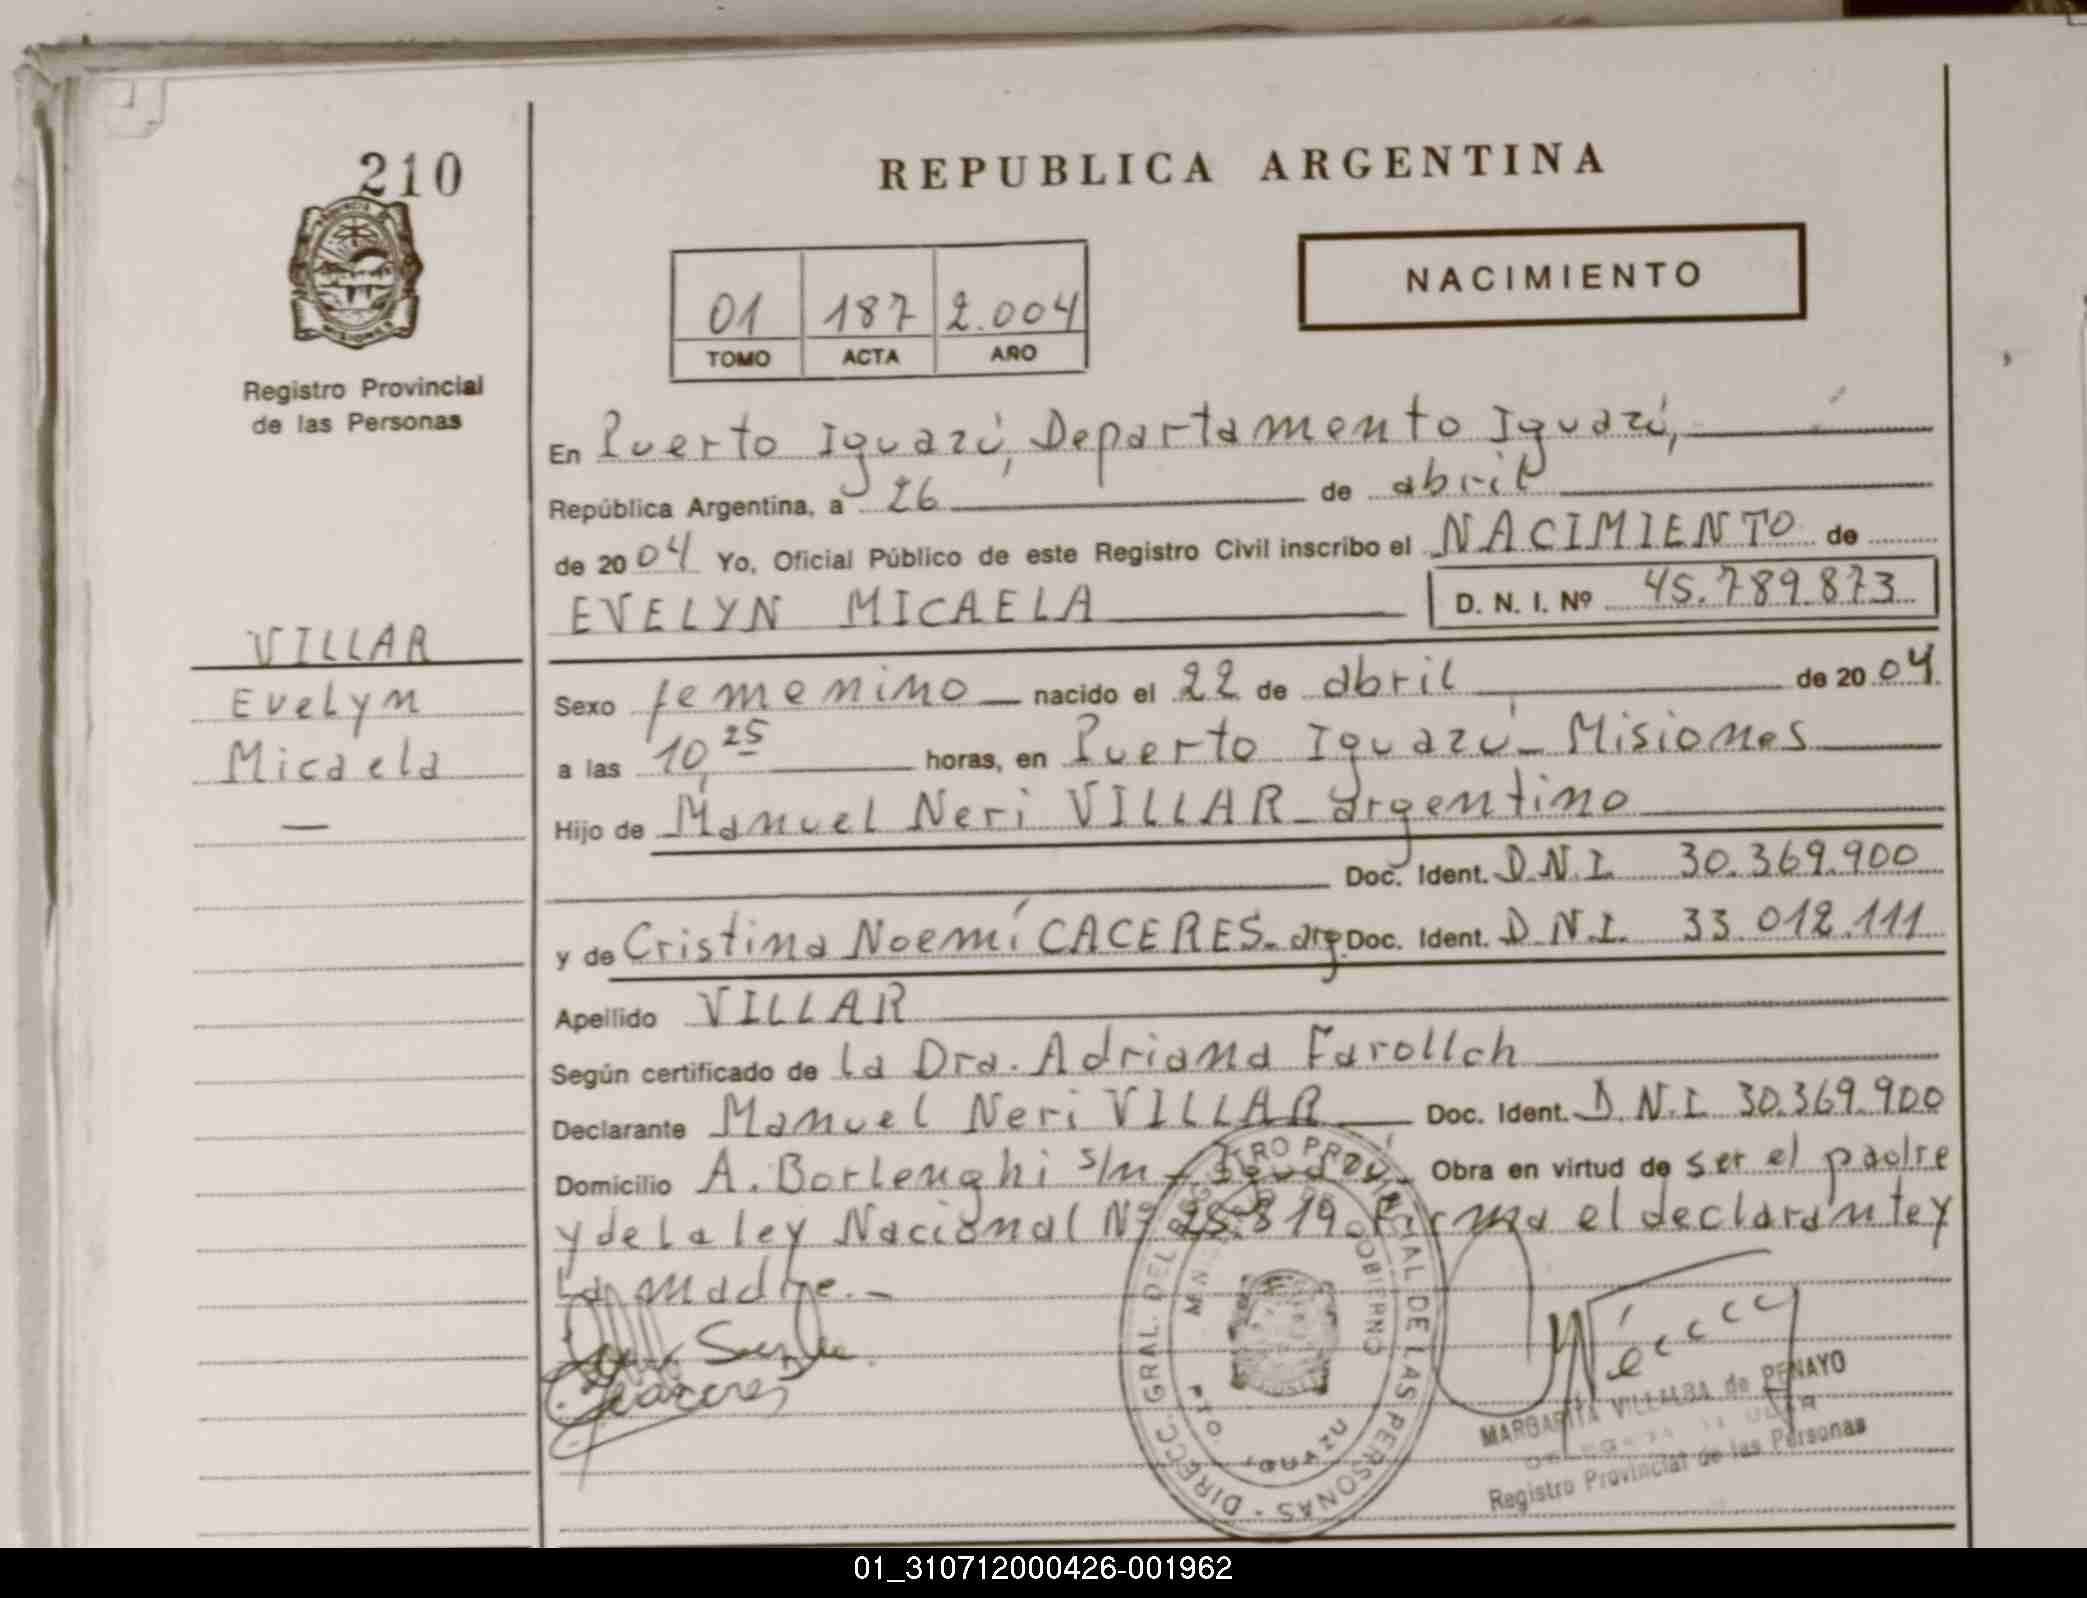 210
REPUBLICA ARGENTINA
NACIMIENTO
01 187 2.004
TOMO ACTA AÑO
Registro Provincial
de las Personas
En Puerto Iguazú, Departamento Iguazú,
República Argentina, a 26 de abril
de 2004 Yo, Oficial Público de este Registro Civil inscribo el NACIMIENTO de
EVELYN MICAELA D. N. I. Nº 45.789.873
VILLAR
Evelyn
Micaela
Sexo femenino nacido el 22 de abril de 2004
a las 10,25 horas, en Puerto Iguazú - Misiones
Hijo de Manuel Neri VILLAR - argentino
Doc. Ident. D.N.I. 30.369.900
y de Cristina Noemí CACERES - arg. Doc. Ident. D.N.I. 33.012.111
Apellido VILLAR
Según certificado de la Dra. Adriana Farollch
Declarante Manuel Neri VILLAR Doc. Ident. D.N.I. 30.369.900
Domicilio A. Borlenghi s/n - Iguazú - Obra en virtud de ser el padre
y de la ley Nacional Nº 25.819. Firma el declarante y
la madre. -
DIRECC. GRAL. DEL REGISTRO PROVINCIAL DE LAS PERSONAS
GOBIERNO
PTO IGUAZU
MARGARITA VILLALBA de PENAYO
Registro Provincial de las Personas
01_310712000426-001962